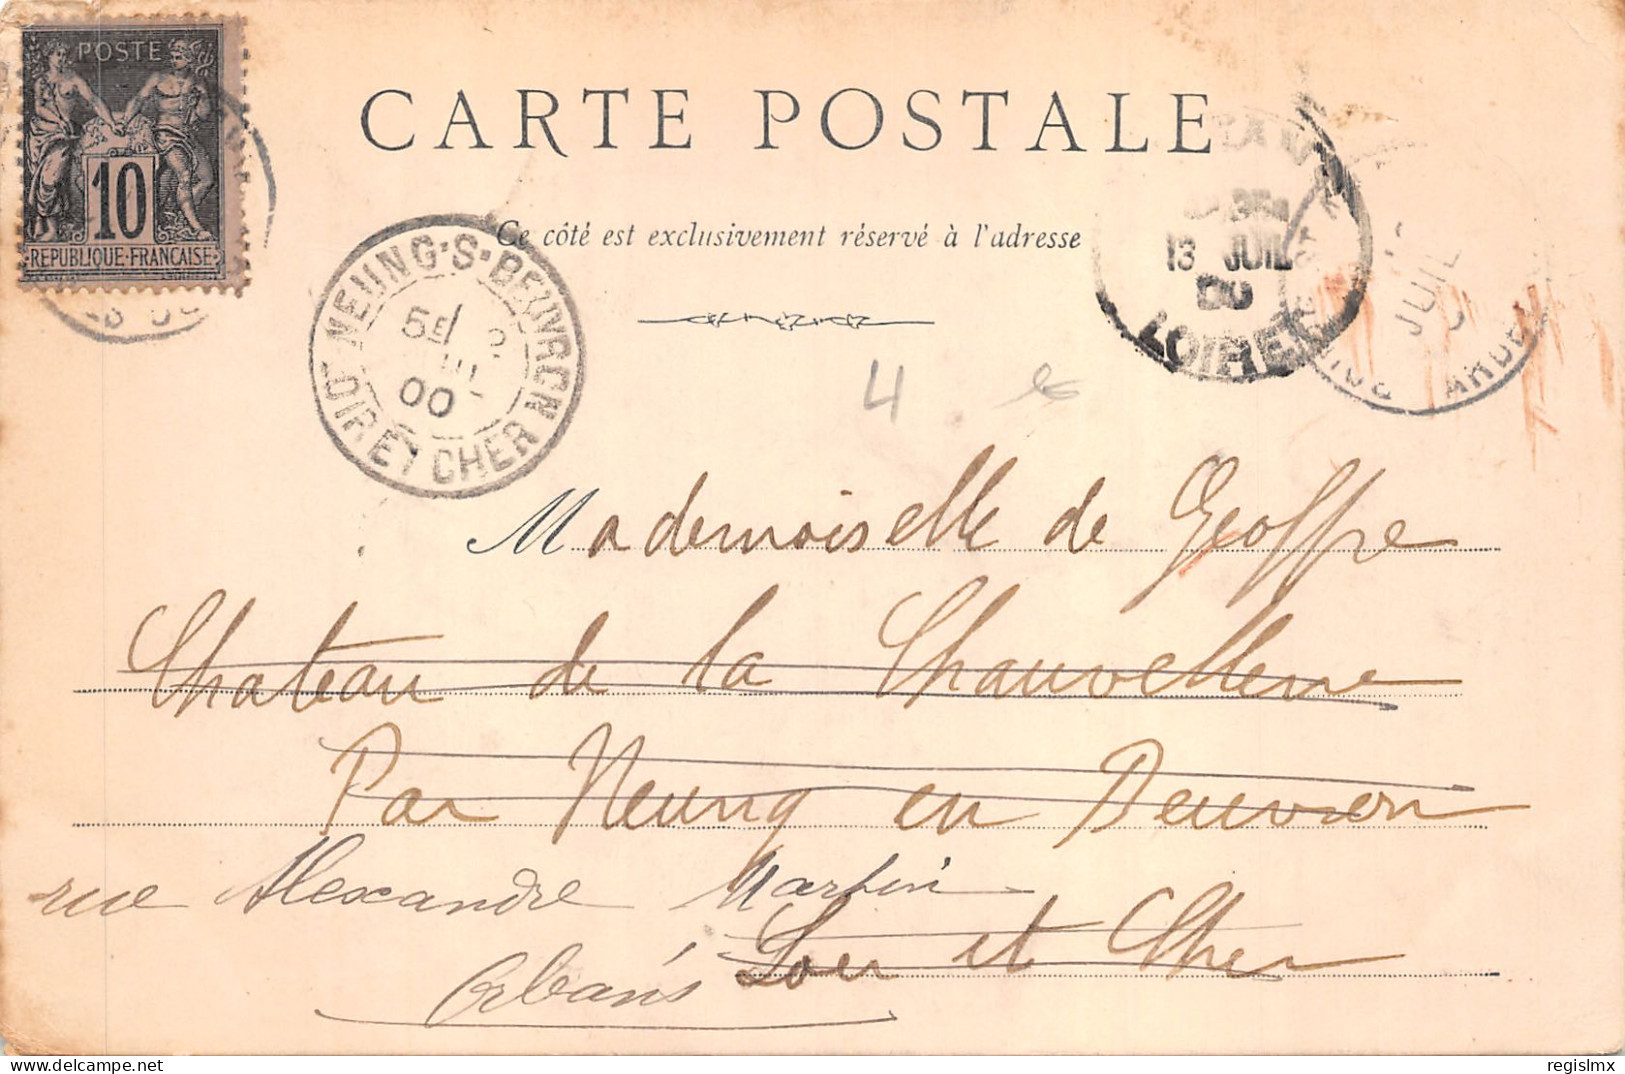 POSTE
10
REPUBLIQUE·FRANCAISE
CARTE POSTALE
Ce côté est exclusivement réservé à l'adresse
NEUNG-S-BEUVRON
5E
00
LOIR ET CHER
13 JUIL
00
LOIRET
JUIL
4
Mademoiselle de Geoffre
Chateau de la Chauvellerie
Par Neung en Beuvron
rue Alexandre Martin
Loir et Cher
Orléans
delcampe.net
regislmx